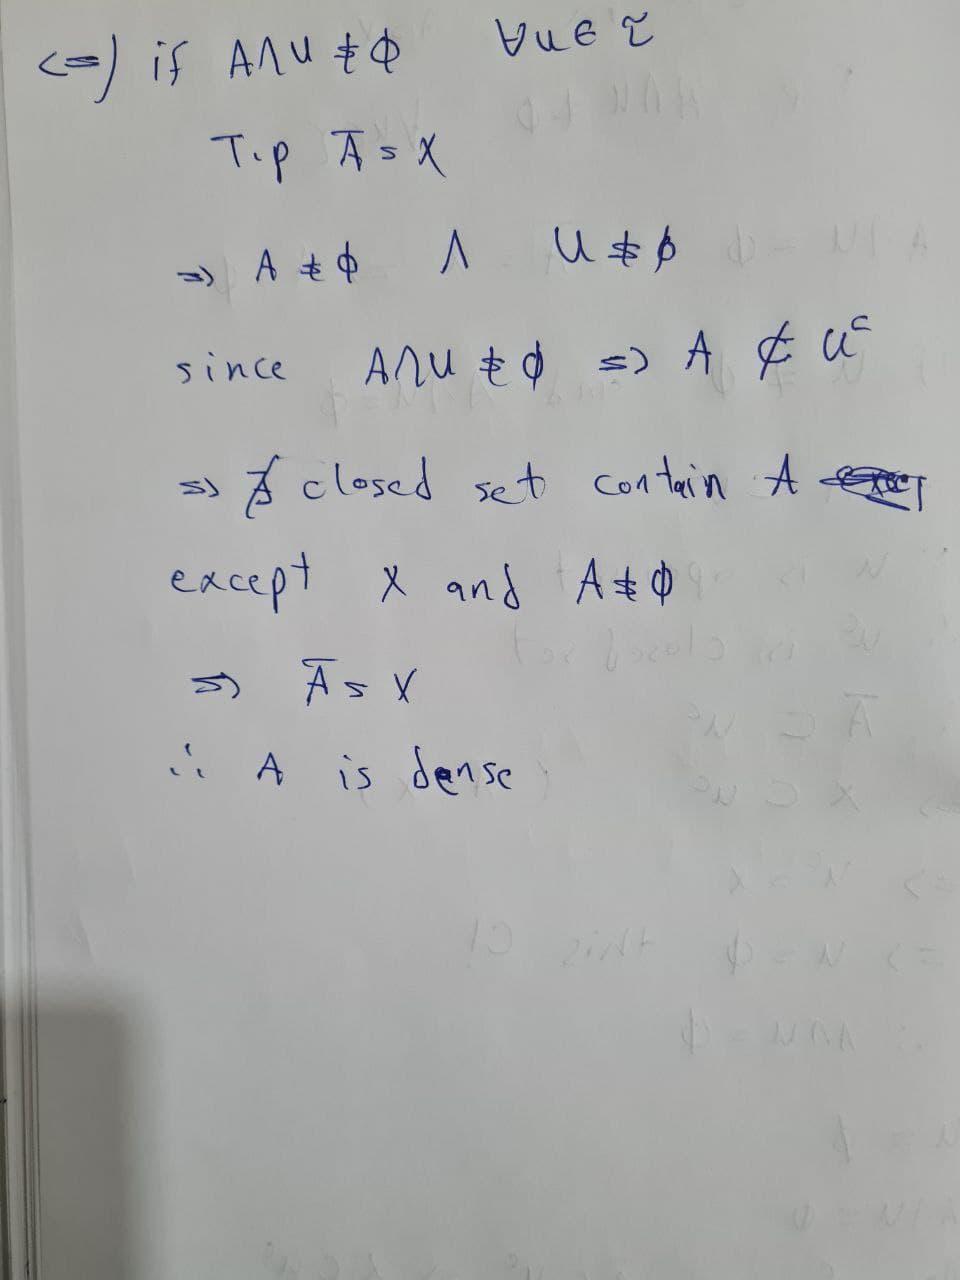 <=) if A∩U ≠ ϕ ∀u∈ τ
T.p Ā = X
=> A ≠ ϕ ∧ U ≠ ϕ
since A∩U ≠ ϕ => A ⊄ U^c
=> ∄ closed set contain A
except X and A ≠ ϕ
=> Ā = X
∴ A is dense